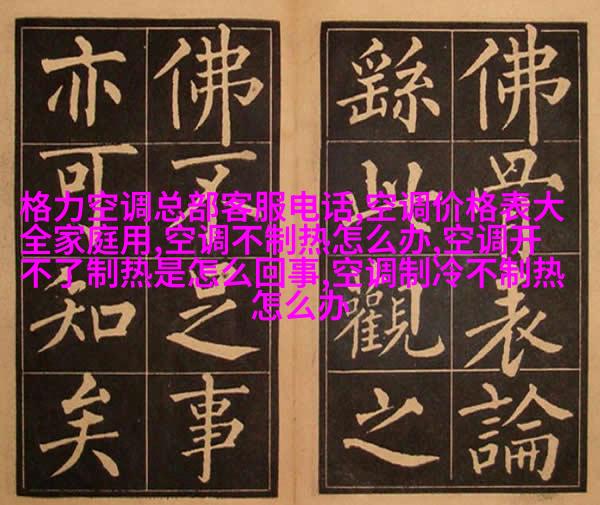 格力空调总部客服电话,空调价格表大
全家庭用,空调不制热怎么办,空调开
不了制热是怎么回事,空调制冷不制热
怎么办
佛骨表論
繇此觀之
佛不足事
亦可知矣